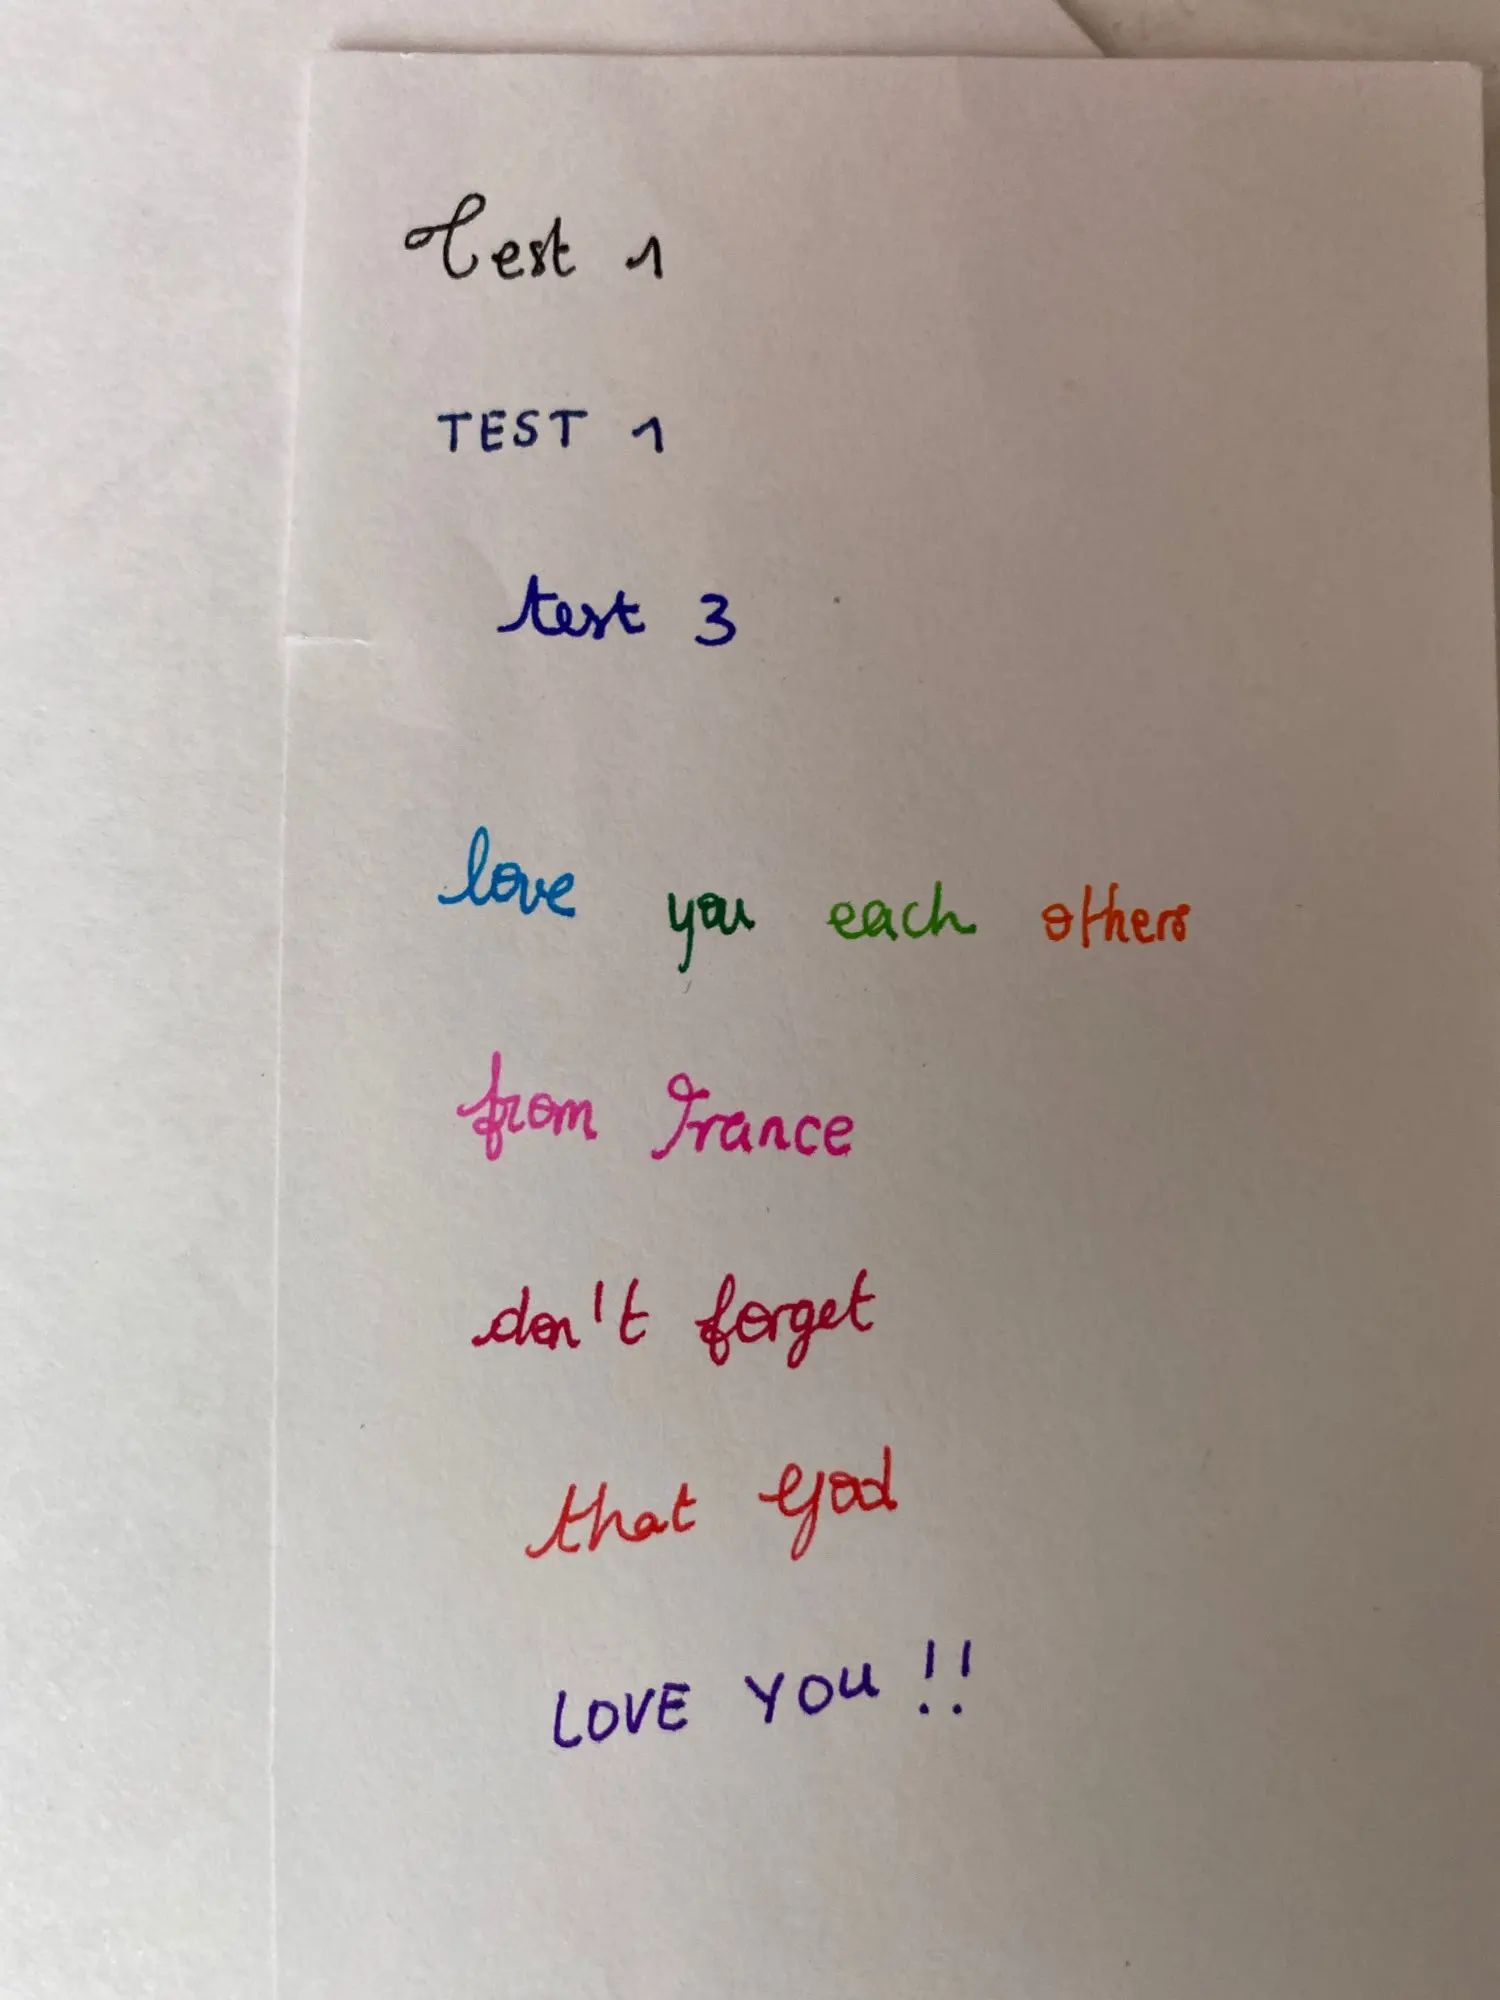 Test 1
TEST 1
test 3
love you each others
from France
don't forget
that God
LOVE YOU !!